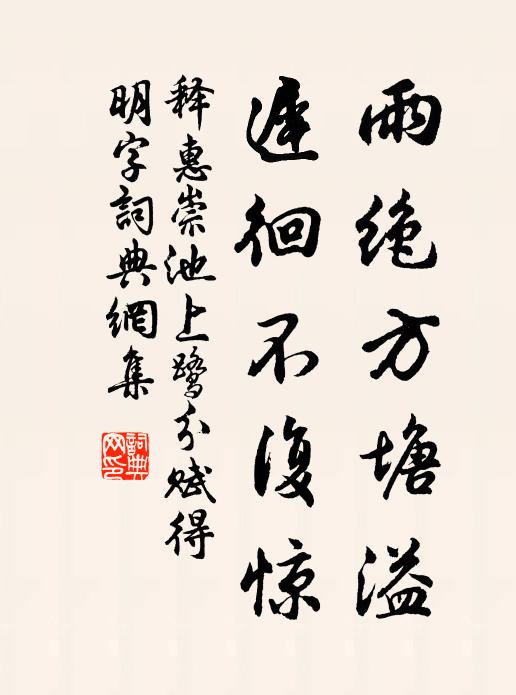 雨绝方塘溢
遅徊不復惊
释惠崇池上鹭分赋得
明字詞典網集
詞典
网印